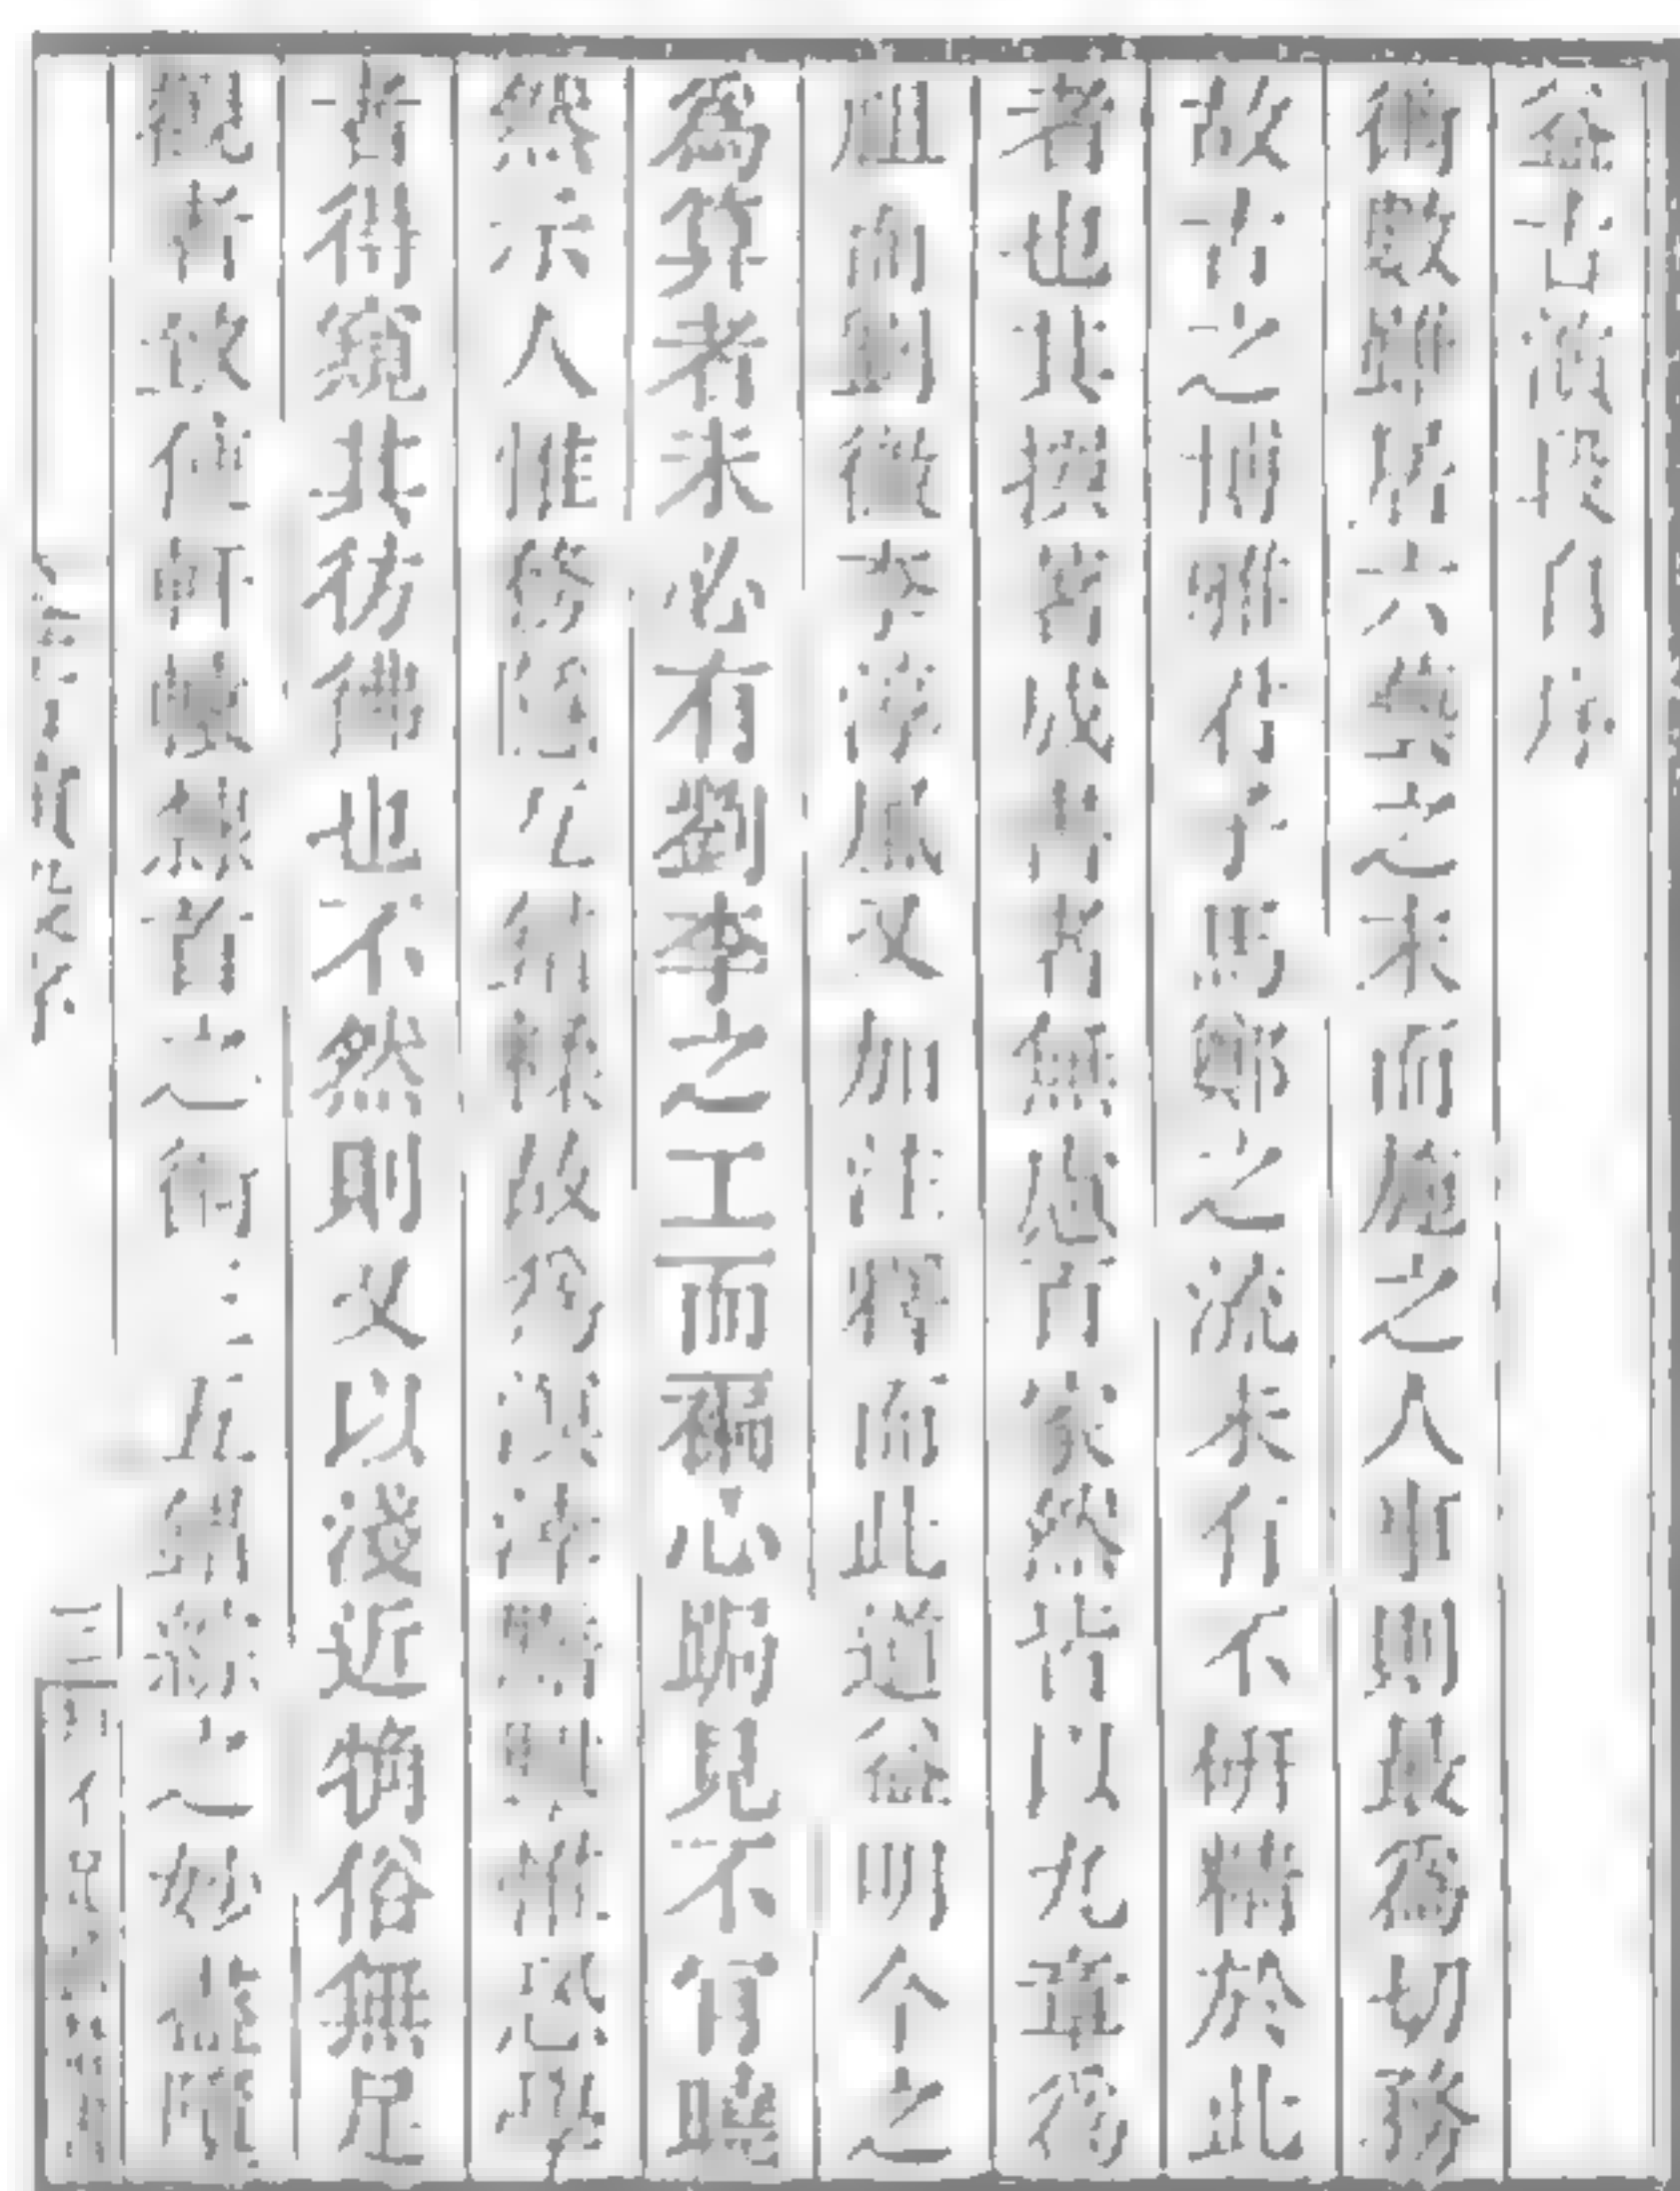 益古演段自序
術數雖居六藝之末而施之人事則最為切務
故古之博雅君子馬鄭之流未有不研精於此
者也其撰著成書者無慮百家然皆以九章為
祖而劉徽李淳風又加注釋而此道益明今之
為算者未必有劉李之工而褊心跼見不肯曉
然示人惟務隱互錯糅故為溟涬黯黮惟恐學
者得窺其彷彿也不然則又以淺近觕俗無足
觀者致使軒轅隸首之術三五錯綜之妙盡墮